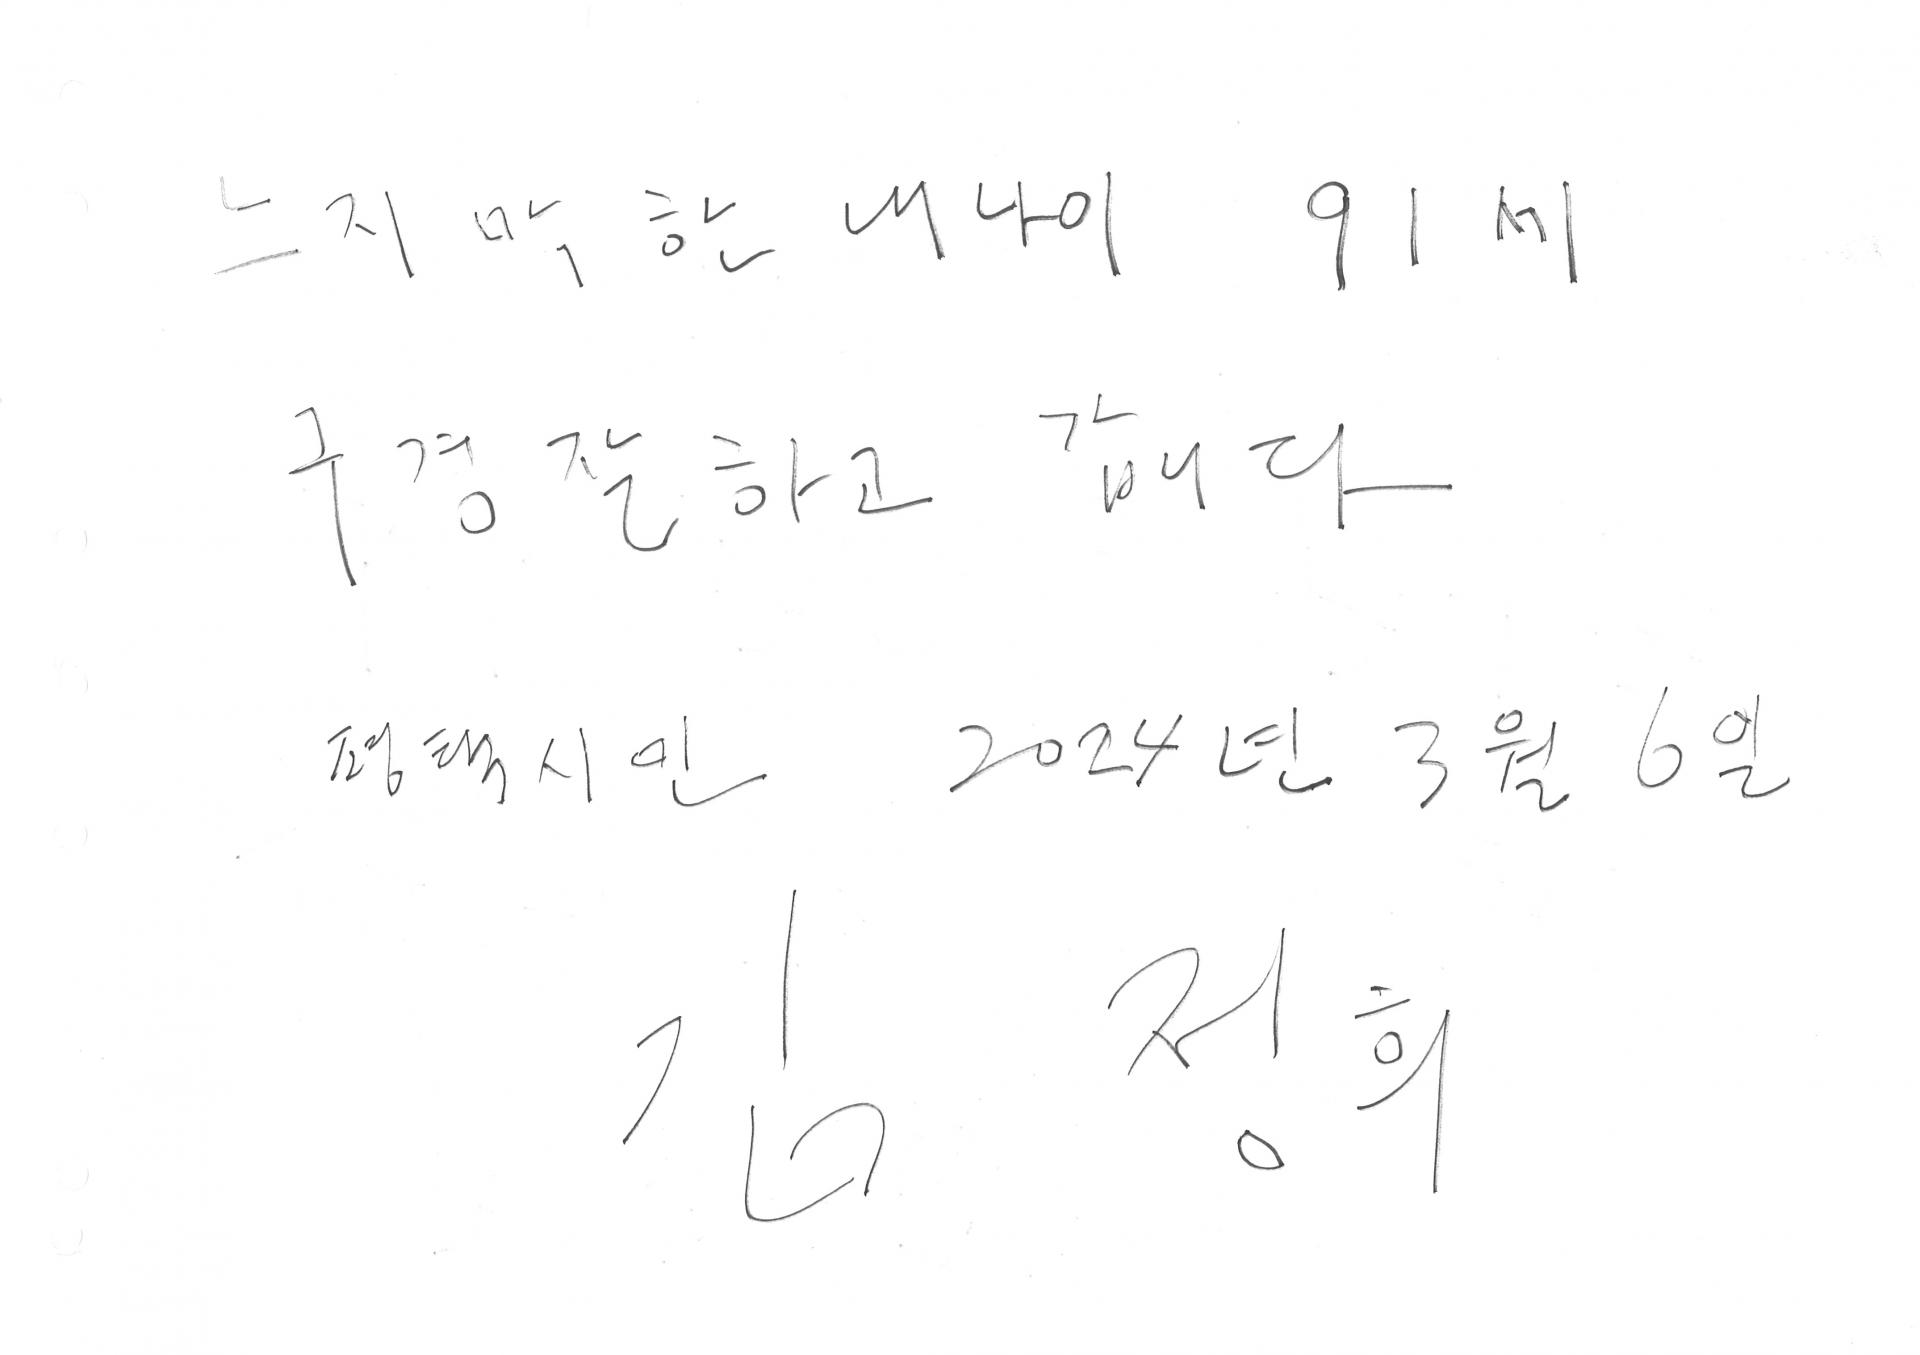 느지막한 내나이 91세
구경잘하고 갑니다
평택시인 2024년 3월 6일
김 정희